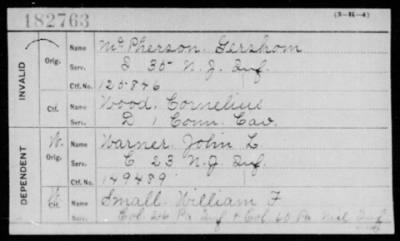 182763
(3-H-4)
INVALID
Orig. Name McPherson, Gershom
Serv. D 35 N.J. Inf.
Ctf. No. 125846
Ctf. Name Wood, Cornelius
Serv. D 1 Conn Cav.
DEPENDENT
W. Orig. Name Warner, John L
Serv. C 23 N.J. Inf
Ctf. No. 149489
Ctf. Name Small, William F
Serv. Col. 26 Pa Inf & Col. 60 Pa Mil Inf